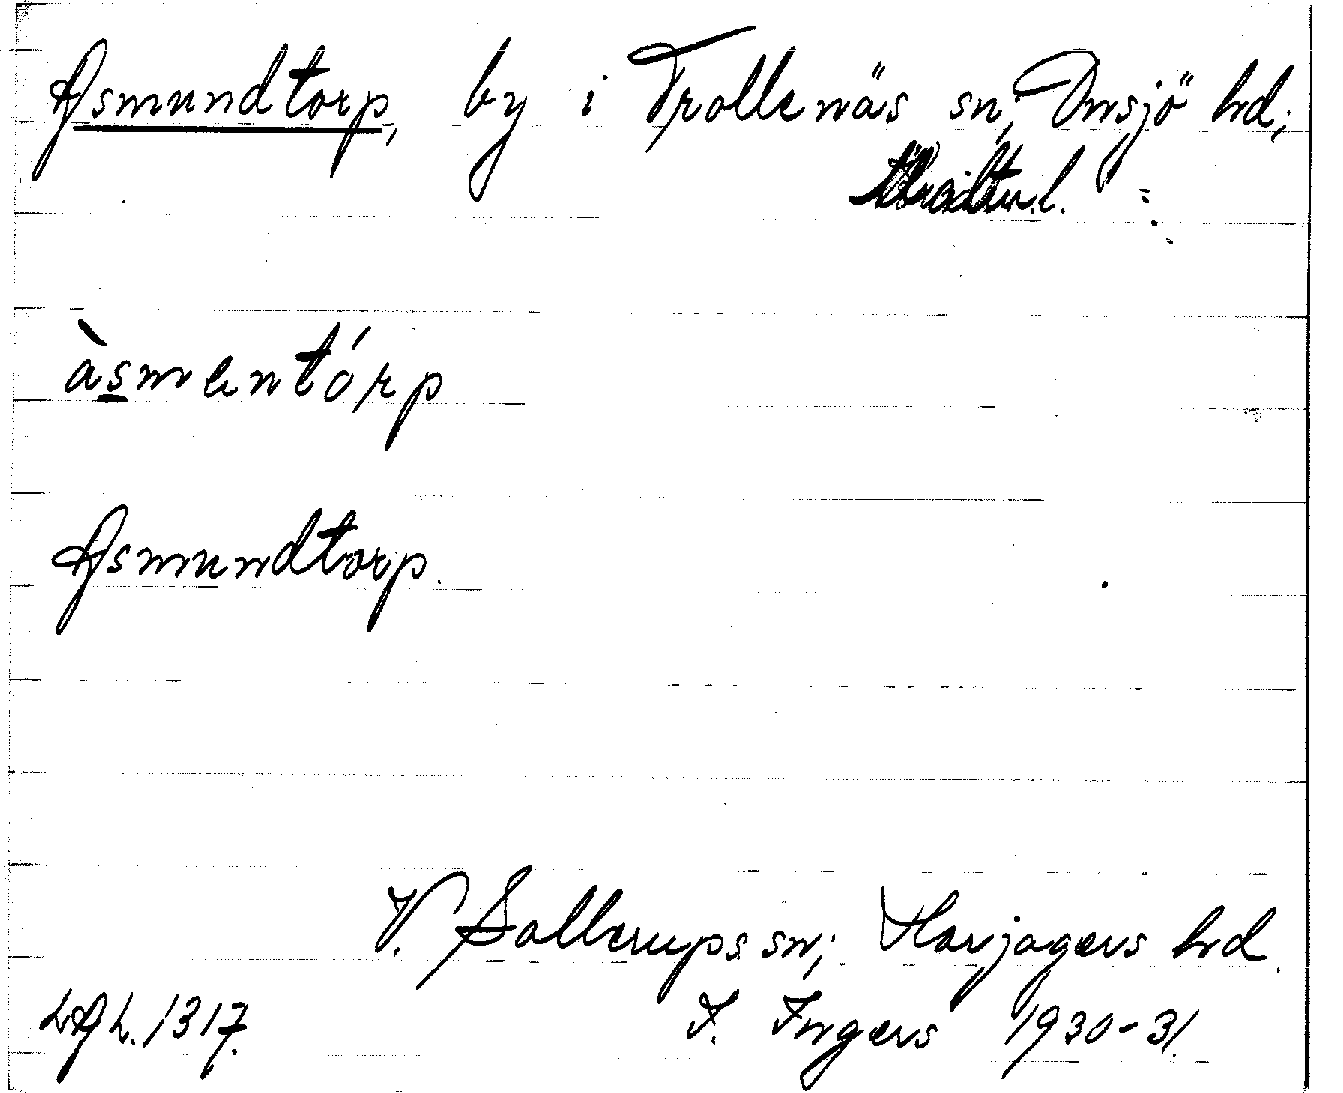 Asmundtorp, by i Trollenäs sn; Onsjö hd;
àsmentórp
Asmundtorp.
V. Sallerups sn; Harjagers hd.
LAL. 1317. I. Ingers 1930-31.